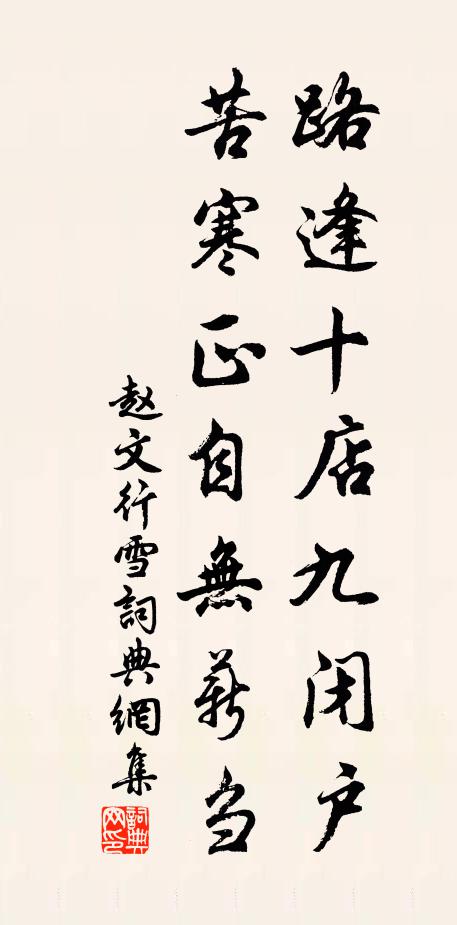 路逢十店九闭户
苦寒正自無薪刍
赵文行雪詞典網集
詞典网印